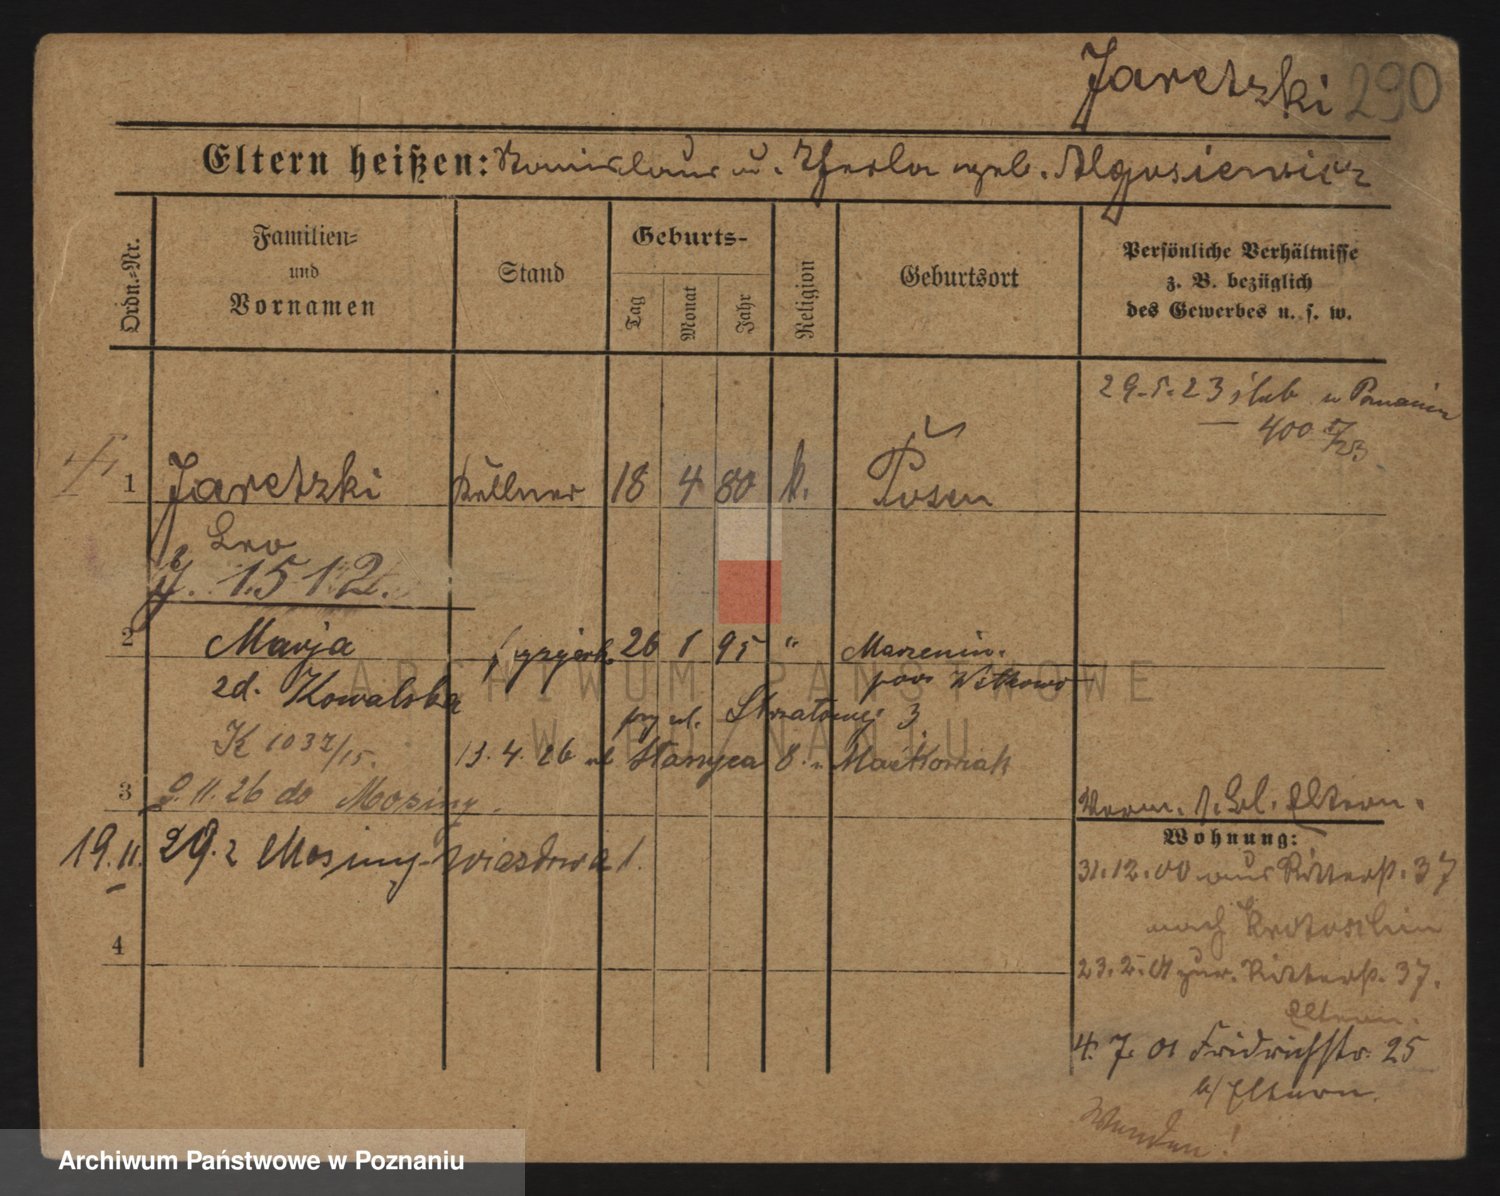 Jaretzki 290
Eltern heißen: Stanislaus u. Thekla geb. Algusiewicz
Ordn.-Nr.
Familien-
und
Vornamen
Stand
Geburts-
Tag
Monat
Jahr
Religion
Geburtsort
Persönliche Verhältnisse
z. B. bezüglich
des Gewerbes u. s. w.
29.5.23 ślub w Poznaniu
400 5/23
1 Jaretzki Kellner 18 4 80 k. Posen
Leo
15 12.
2 Marja 26 1 95 " Marzenin.
zd. Kowalska pow Witkowo
przy ul. Strzałowej 3
K 1037/15. 13.4.26 ul Staryca 8. u Maćkowiak
3 9.11.26 do Mosiny.
19.11. 29.2 Mosiny
4
Verm. s. Bl. Eltern.
Wohnung:
31.12.00 aus Ritterst. 37
nach Krotoschin
23.2.01 zur. Ritterst. 37.
Eltern.
4. 7. 01 Fridrichstr. 25
b/ Eltern.
Wenden!
ARCHIWUM PAŃSTWOWE
W POZNANIU
Archiwum Państwowe w Poznaniu